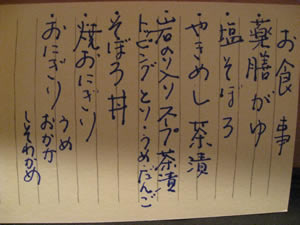 お食事
・薬膳がゆ
・塩そぼろ
・やきめし茶漬
・岩のり入りスープ茶漬
トッピング とり・うめ・だんご
・そぼろ丼
・焼おにぎり
・おにぎり うめ
おかか
しそわかめ